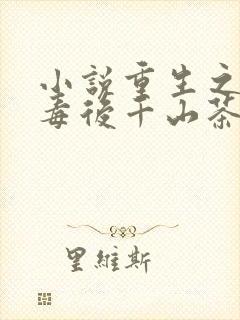 小說重生之
毒後千山茶
里維斯